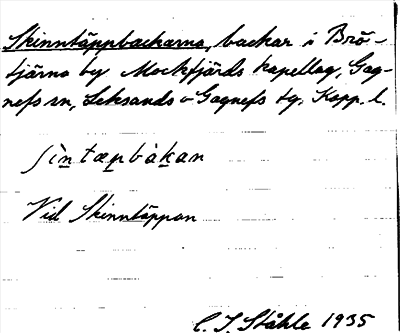 Skinntäppbackarna, backar i Brö-
tjärna by Mockfjärds kapellag, Gag-
nefs sn, Leksands o Gagnefs tg. Kopp. l.
ʃìntæpbàkan
Vid Skinntäppan
C. I. Ståhle 1935